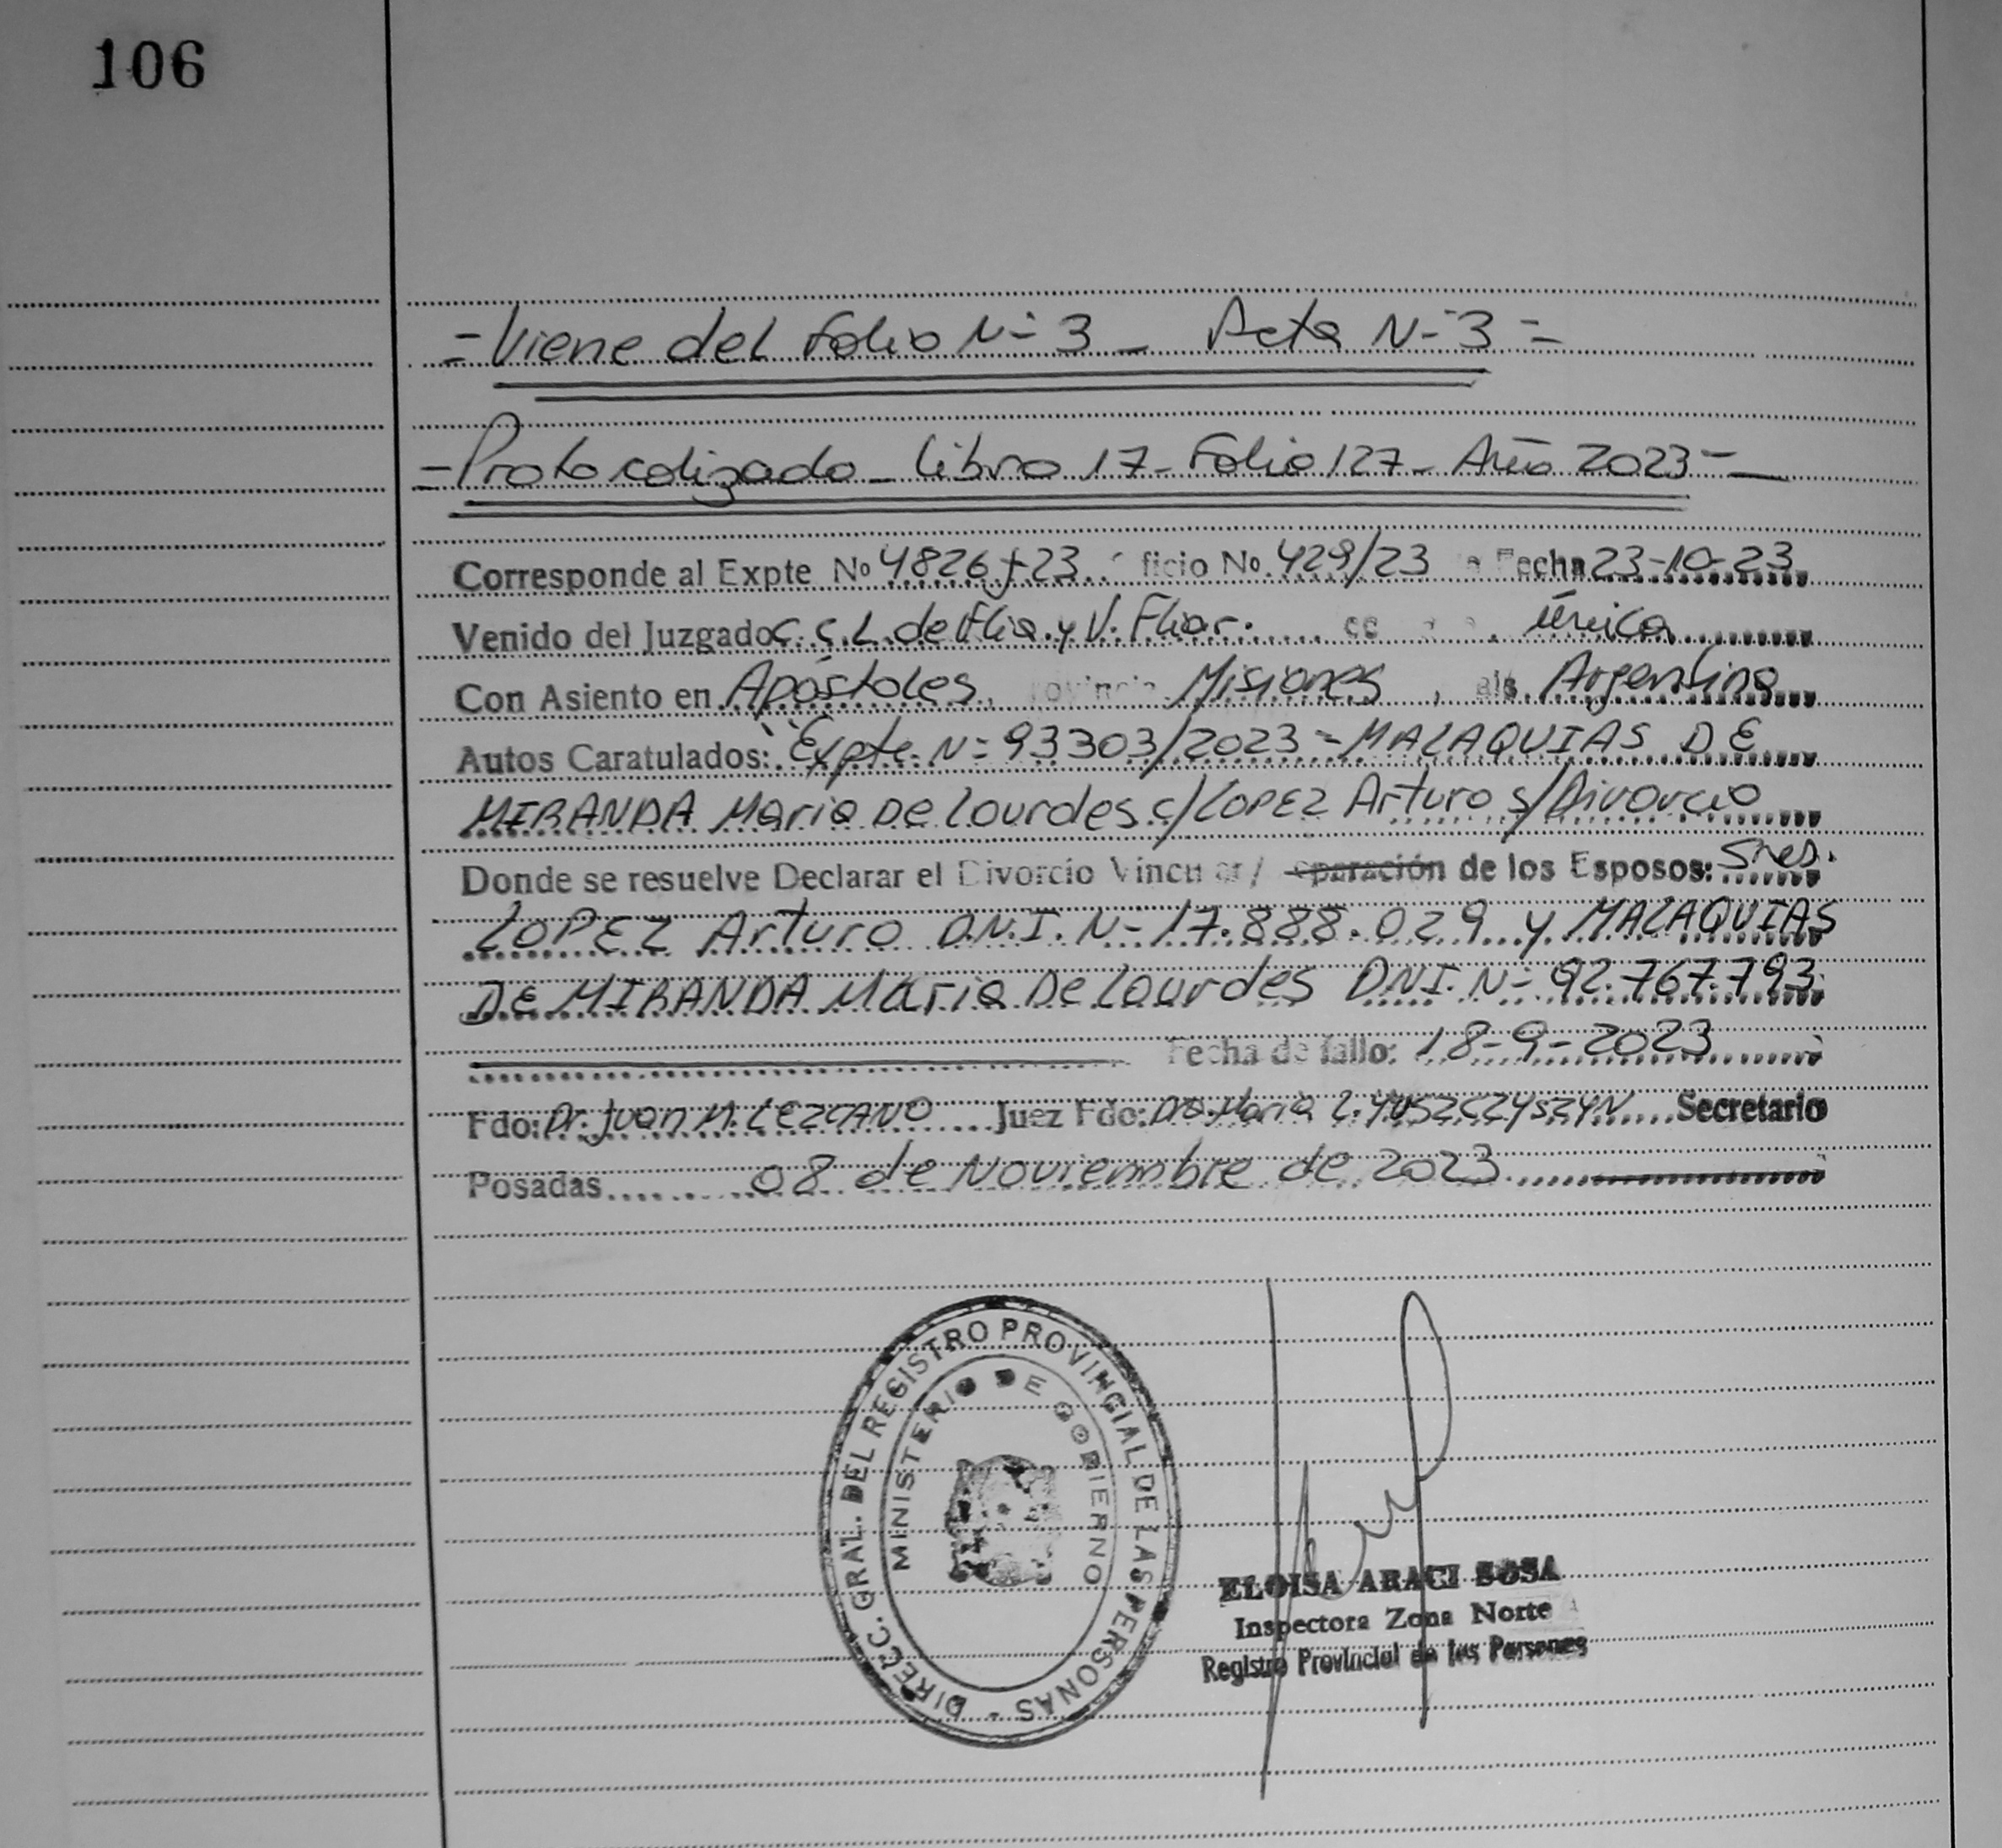 106
= Viene del Folio N- 3 _ Acta N- 3 =
= Protocolizado _ Libro 17 _ Folio 127 _ Año 2023 =
Corresponde al Expte Nº 4826 f 23 ficio No. 429/23 Fecha 23-10-23
Venido del Juzgado C. C. L. de Flia. y V. Fliar. única
Con Asiento en Apóstoles, Misiones, Argentina
Autos Caratulados: "Expte. N= 93303/2023 - MALAQUIAS DE
MIRANDA Maria De Lourdes c/ LOPEZ Arturo s/Divorcio
Donde se resuelve Declarar el Divorcio Vincu ar/ eparación de los Esposos: Sres.
LOPEZ Arturo D.N.I. N- 17.888.029 y MALAQUIAS
DE MIRANDA Maria De Lourdes DNI. N- 92.767.793.
Fecha de fallo: 18-9-2023
Fdo: Dr. Juan M. LEZCANO Juez Fdo: Dra. Maria L. YUSZCZYSZYN Secretario
Posadas 08 de Noviembre de 2023
DIRECC. GRAL. DEL REGISTRO PROVINCIAL DE LAS PERSONAS -
MINISTERIO DE GOBIERNO
ELOISA ARACI SOSA
Inspectora Zona Norte
Registro Provincial de las Personas